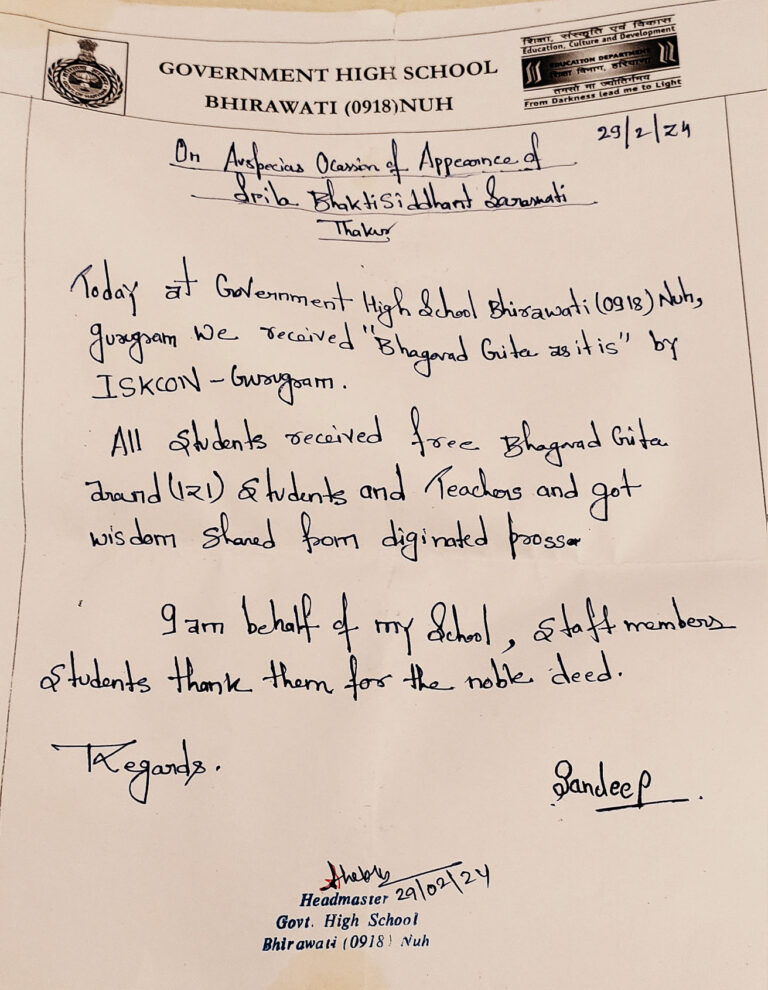 शिक्षा, संस्कृति एवं विकास
Education, Culture and Development
EDUCATION DEPARTMENT
शिक्षा विभाग, हरियाणा
तमसो मा ज्योतिर्गमय
From Darkness lead me to Light
GOVERNMENT HIGH SCHOOL
BHIRAWATI (0918) NUH
29/2/24
On Auspecias Ocassion of Appearance of
Srila BhaktiSiddhant Saraswati
Thakur
Today at Government High School Bhirawati (0918) Nuh,
gurugram we received "Bhagavad Gita as it is" by
ISKCON - Gurugram.
All Students received free Bhagavad Gita
around (121) Students and Teachers and got
wisdom shared from diginated
I am behalf of my School, Staff members
Students thank them for the noble deed.
Regards.
Sandeep
29/02/24
Headmaster
Govt. High School
Bhirawati (0918) Nuh